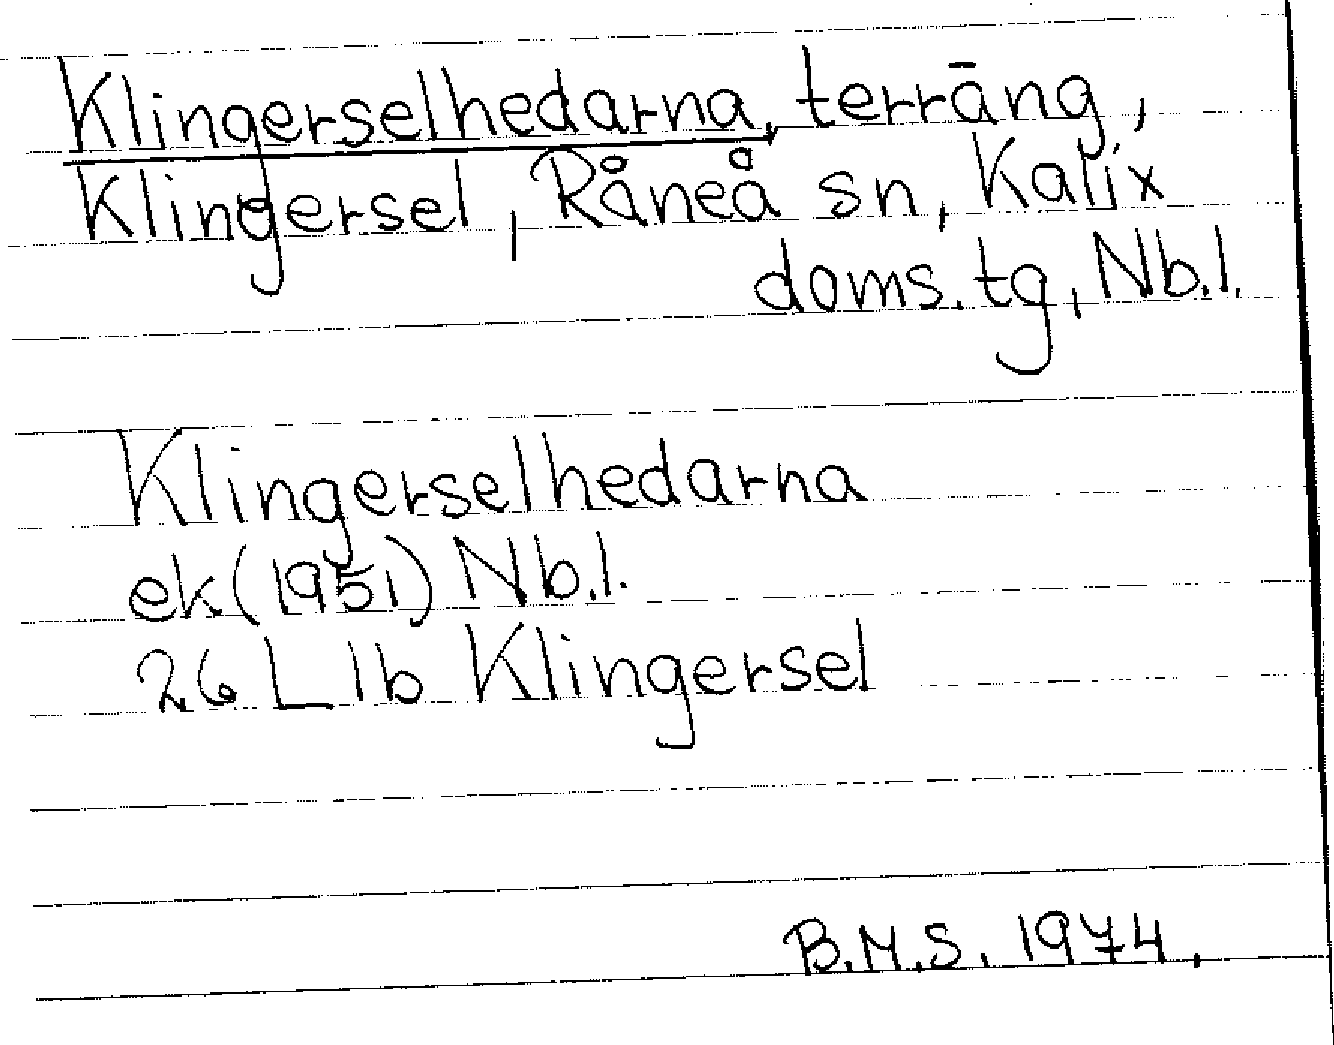 Klingerselhedarna, terräng,
Klingersel, Råneå sn, Kalix
doms. tg, Nb.l.
Klingerselhedarna
ek (1951) Nb.l.
26 L 1b Klingersel
B.M.S. 1974.